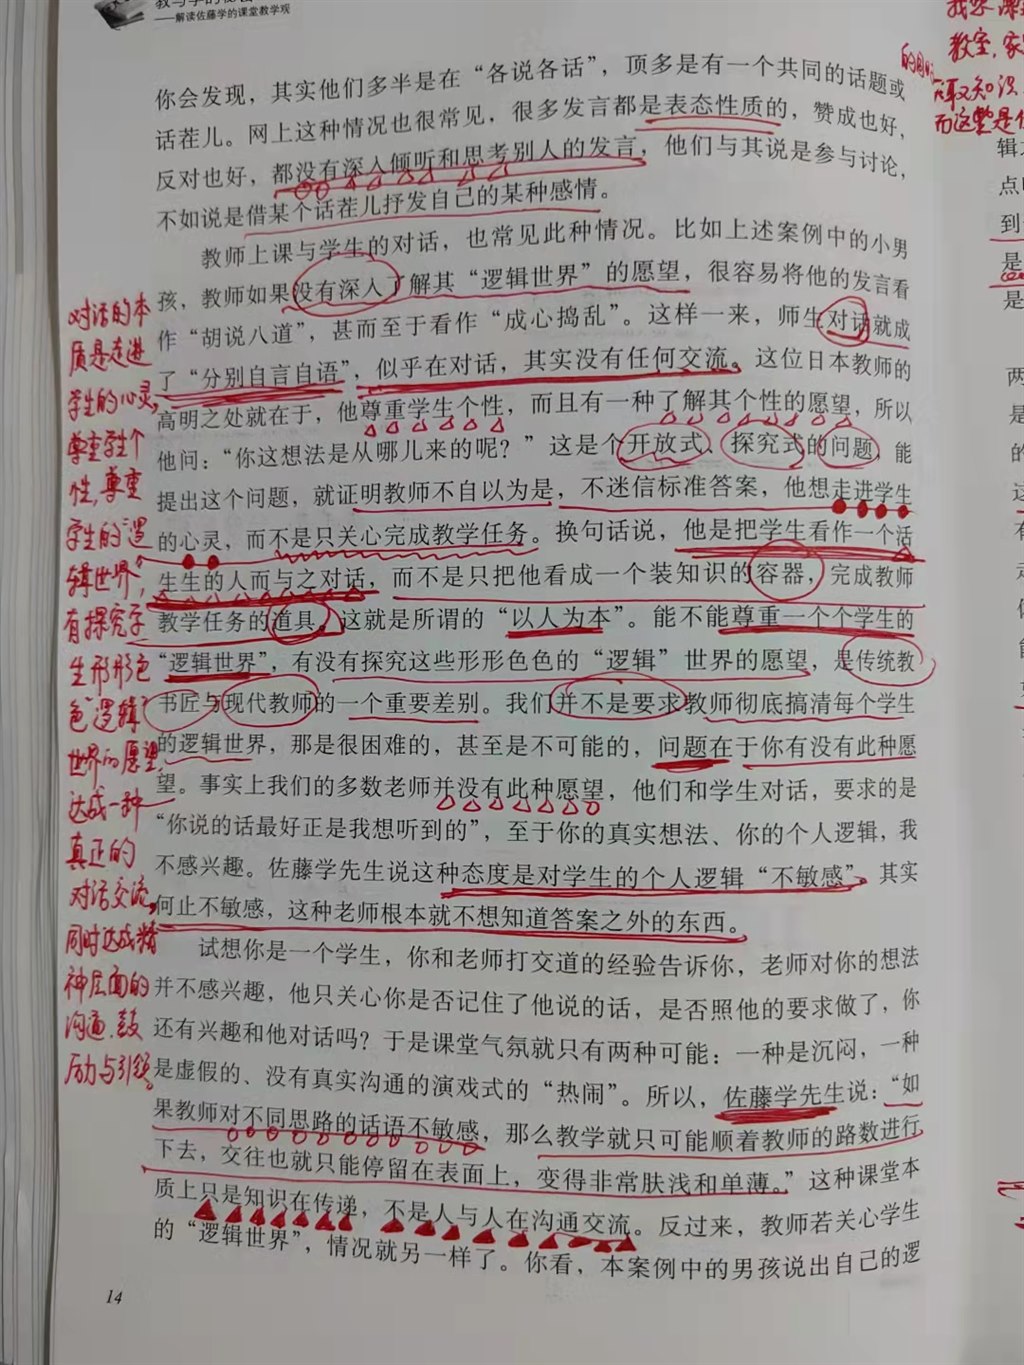 ——解读佐藤学的课堂教学观
你会发现，其实他们多半是在“各说各话”，顶多是有一个共同的话题或
话茬儿。网上这种情况也很常见，很多发言都是表态性质的，赞成也好，
反对也好，都没有深入倾听和思考别人的发言，他们与其说是参与讨论，
不如说是借某个话茬儿抒发自己的某种感情。
教师上课与学生的对话，也常见此种情况。比如上述案例中的小男
孩，教师如果没有深入了解其“逻辑世界”的愿望，很容易将他的发言看
作“胡说八道”，甚而至于看作“成心捣乱”。这样一来，师生对话就成
了“分别自言自语”，似乎在对话，其实没有任何交流。这位日本教师的
高明之处就在于，他尊重学生个性，而且有一种了解其个性的愿望，所以
他问：“你这想法是从哪儿来的呢？”这是个开放式、探究式的问题，能
提出这个问题，就证明教师不自以为是，不迷信标准答案，他想走进学生
的心灵，而不是只关心完成教学任务。换句话说，他是把学生看作一个活
生生的人而与之对话，而不是只把他看成一个装知识的容器，完成教师
教学任务的道具。这就是所谓的“以人为本”。能不能尊重一个个学生的
“逻辑世界”，有没有探究这些形形色色的“逻辑”世界的愿望，是传统教
书匠与现代教师的一个重要差别。我们并不是要求教师彻底搞清每个学生
的逻辑世界，那是很困难的，甚至是不可能的，问题在于你有没有此种愿
望。事实上我们的多数老师并没有此种愿望，他们和学生对话，要求的是
“你说的话最好正是我想听到的”，至于你的真实想法、你的个人逻辑，我
不感兴趣。佐藤学先生说这种态度是对学生的个人逻辑“不敏感”，其实
何止不敏感，这种老师根本就不想知道答案之外的东西。
试想你是一个学生，你和老师打交道的经验告诉你，老师对你的想法
并不感兴趣，他只关心你是否记住了他说的话，是否照他的要求做了，你
还有兴趣和他对话吗？于是课堂气氛就只有两种可能：一种是沉闷，一种
是虚假的、没有真实沟通的演戏式的“热闹”。所以，佐藤学先生说：“如
果教师对不同思路的话语不敏感，那么教学就只可能顺着教师的路数进行
下去，交往也就只能停留在表面上，变得非常肤浅和单薄。”这种课堂本
质上只是知识在传递，不是人与人在沟通交流。反过来，教师若关心学生
的“逻辑世界”，情况就另一样了。你看，本案例中的男孩说出自己的逻
14
对话的本
质是走进
学生的心灵，
尊重学生个
性，尊重
学生的“逻
辑世界”，
有探究学
生形形色
色“逻辑”
世界的愿望，
达成一种
真正的
对话交流，
同时达成精
神层面的
沟通、鼓
励与引领。
教室，家
取知识
而这些是
辑
点
到
是
是
两
是
的